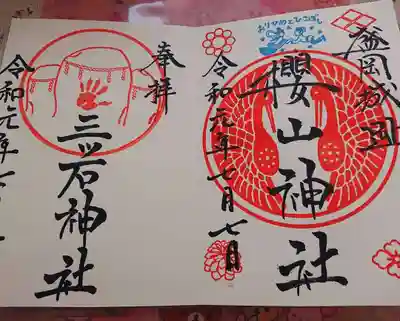 盛岡城跡
おりひめとひこぼし
櫻山神社
令和元年七月七日
奉拝
三ッ石神社
令和元年七